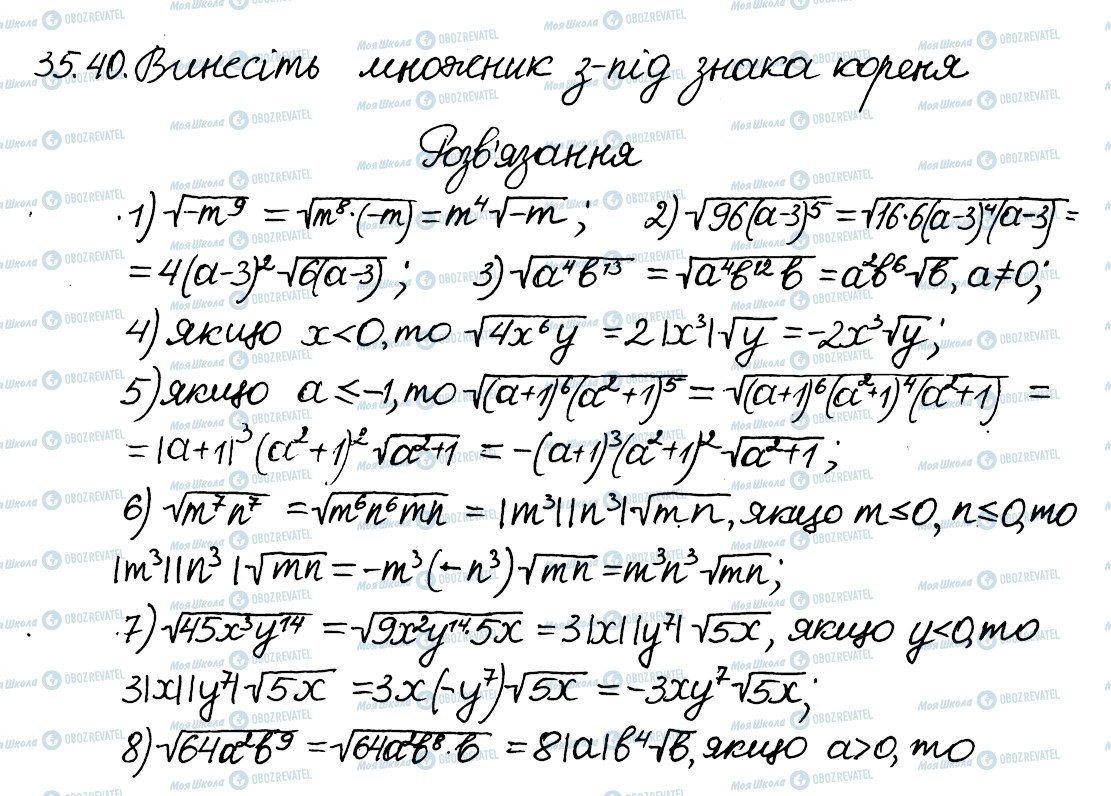 35.40. Винесіть множник з-під знака кореня
Розв'язання
1) √(-m⁹) = √(m⁸·(-m)) = m⁴√(-m); 2) √(96(a-3)⁵) = √(16·6(a-3)⁴(a-3)) =
= 4(a-3)²√(6(a-3)); 3) √(a⁴b¹³) = √(a⁴b¹²b) = a²b⁶√b, a≠0;
4) якщо x<0, то √(4x⁶y) = 2|x³|√y = -2x³√y;
5) якщо a ≤ -1, то √((a+1)⁶(a²+1)⁵) = √((a+1)⁶(a²+1)⁴(a²+1)) =
= |a+1|³(a²+1)²√(a²+1) = -(a+1)³(a²+1)²√(a²+1);
6) √(m⁷n⁷) = √(m⁶n⁶mn) = |m³||n³|√(m·n), якщо m≤0, n≤0, то
|m³||n³|√(mn) = -m³(-n³)√(mn) = m³n³√(mn);
7) √(45x³y¹⁴) = √(9x²y¹⁴·5x) = 3|x||y⁷|√(5x), якщо y<0, то
3|x||y⁷|√(5x) = 3x(-y⁷)√(5x) = -3xy⁷√(5x);
8) √(64a²b⁹) = √(64a²b⁸·b) = 8|a|b⁴√b, якщо a>0, то
Моя Школа OBOZREVATEL